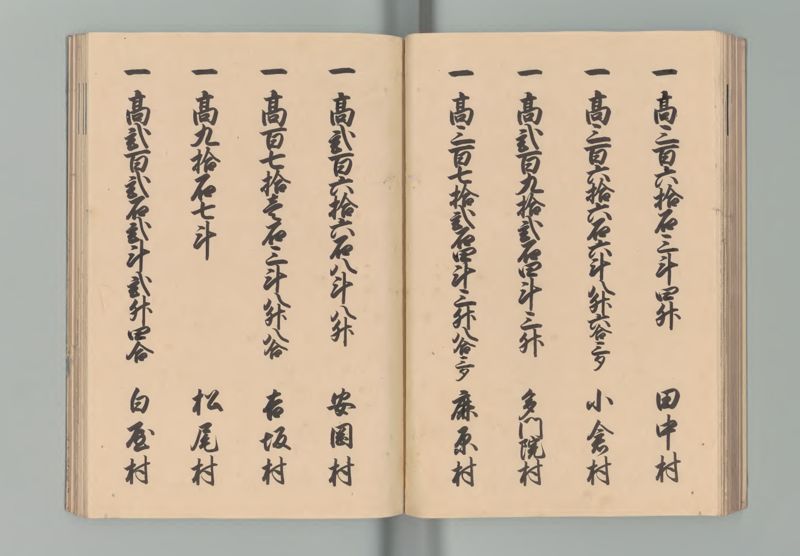 一 高三百六拾石三斗四升 田中村
一 高三百六拾六石六斗八升六合三夕 小倉村
一 高弐百九拾弐石四斗三升 多門院村
一 高三百七拾弐石四斗三升八合三夕 鹿原村
一 高弐百六拾六石八斗八升 安岡村
一 高百七拾壱石三斗八升八合 吉坂村
一 高九拾石七斗 松尾村
一 高弐百弐石弐斗弐升四合 白屋村